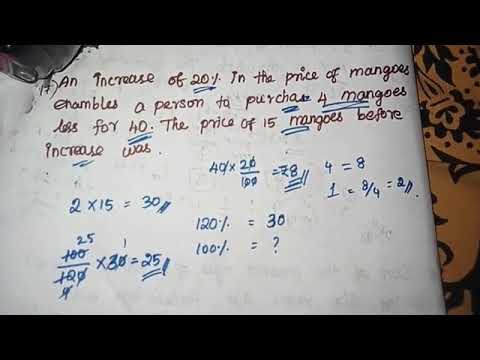 17) An increase of 20% in the price of mangoes
enambles a person to purchas 4 mangoes
less for 40. The price of 15 mangoes before
increase was.
40 × 20/100 = 8 4 = 8
1 = 8/4 = 2
2 × 15 = 30
120% = 30
100% = ?
25 1
100/120 × 30 = 25